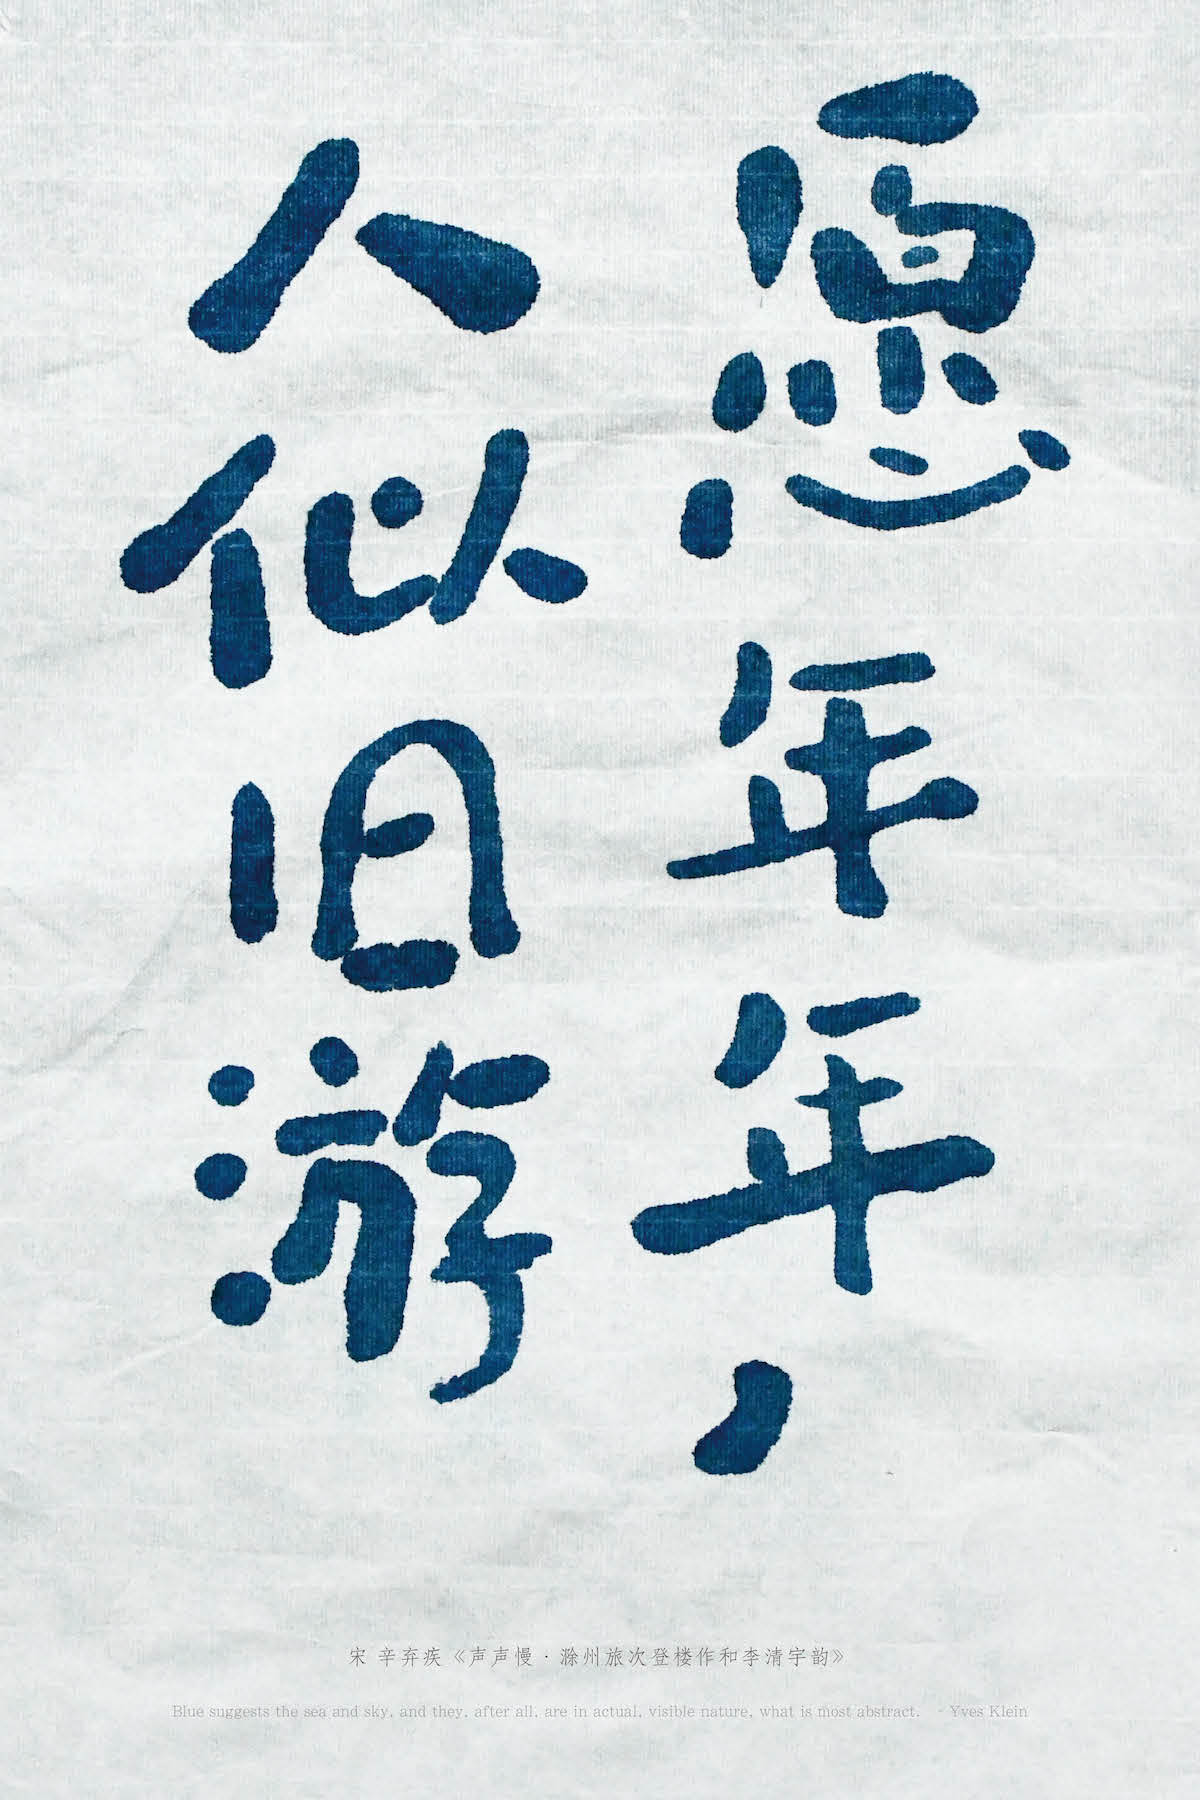 愿年年，
人似旧游
宋 辛弃疾《声声慢·滁州旅次登楼作和李清宇韵》
Blue suggests the sea and sky, and they, after all, are in actual, visible nature, what is most abstract. - Yves Klein